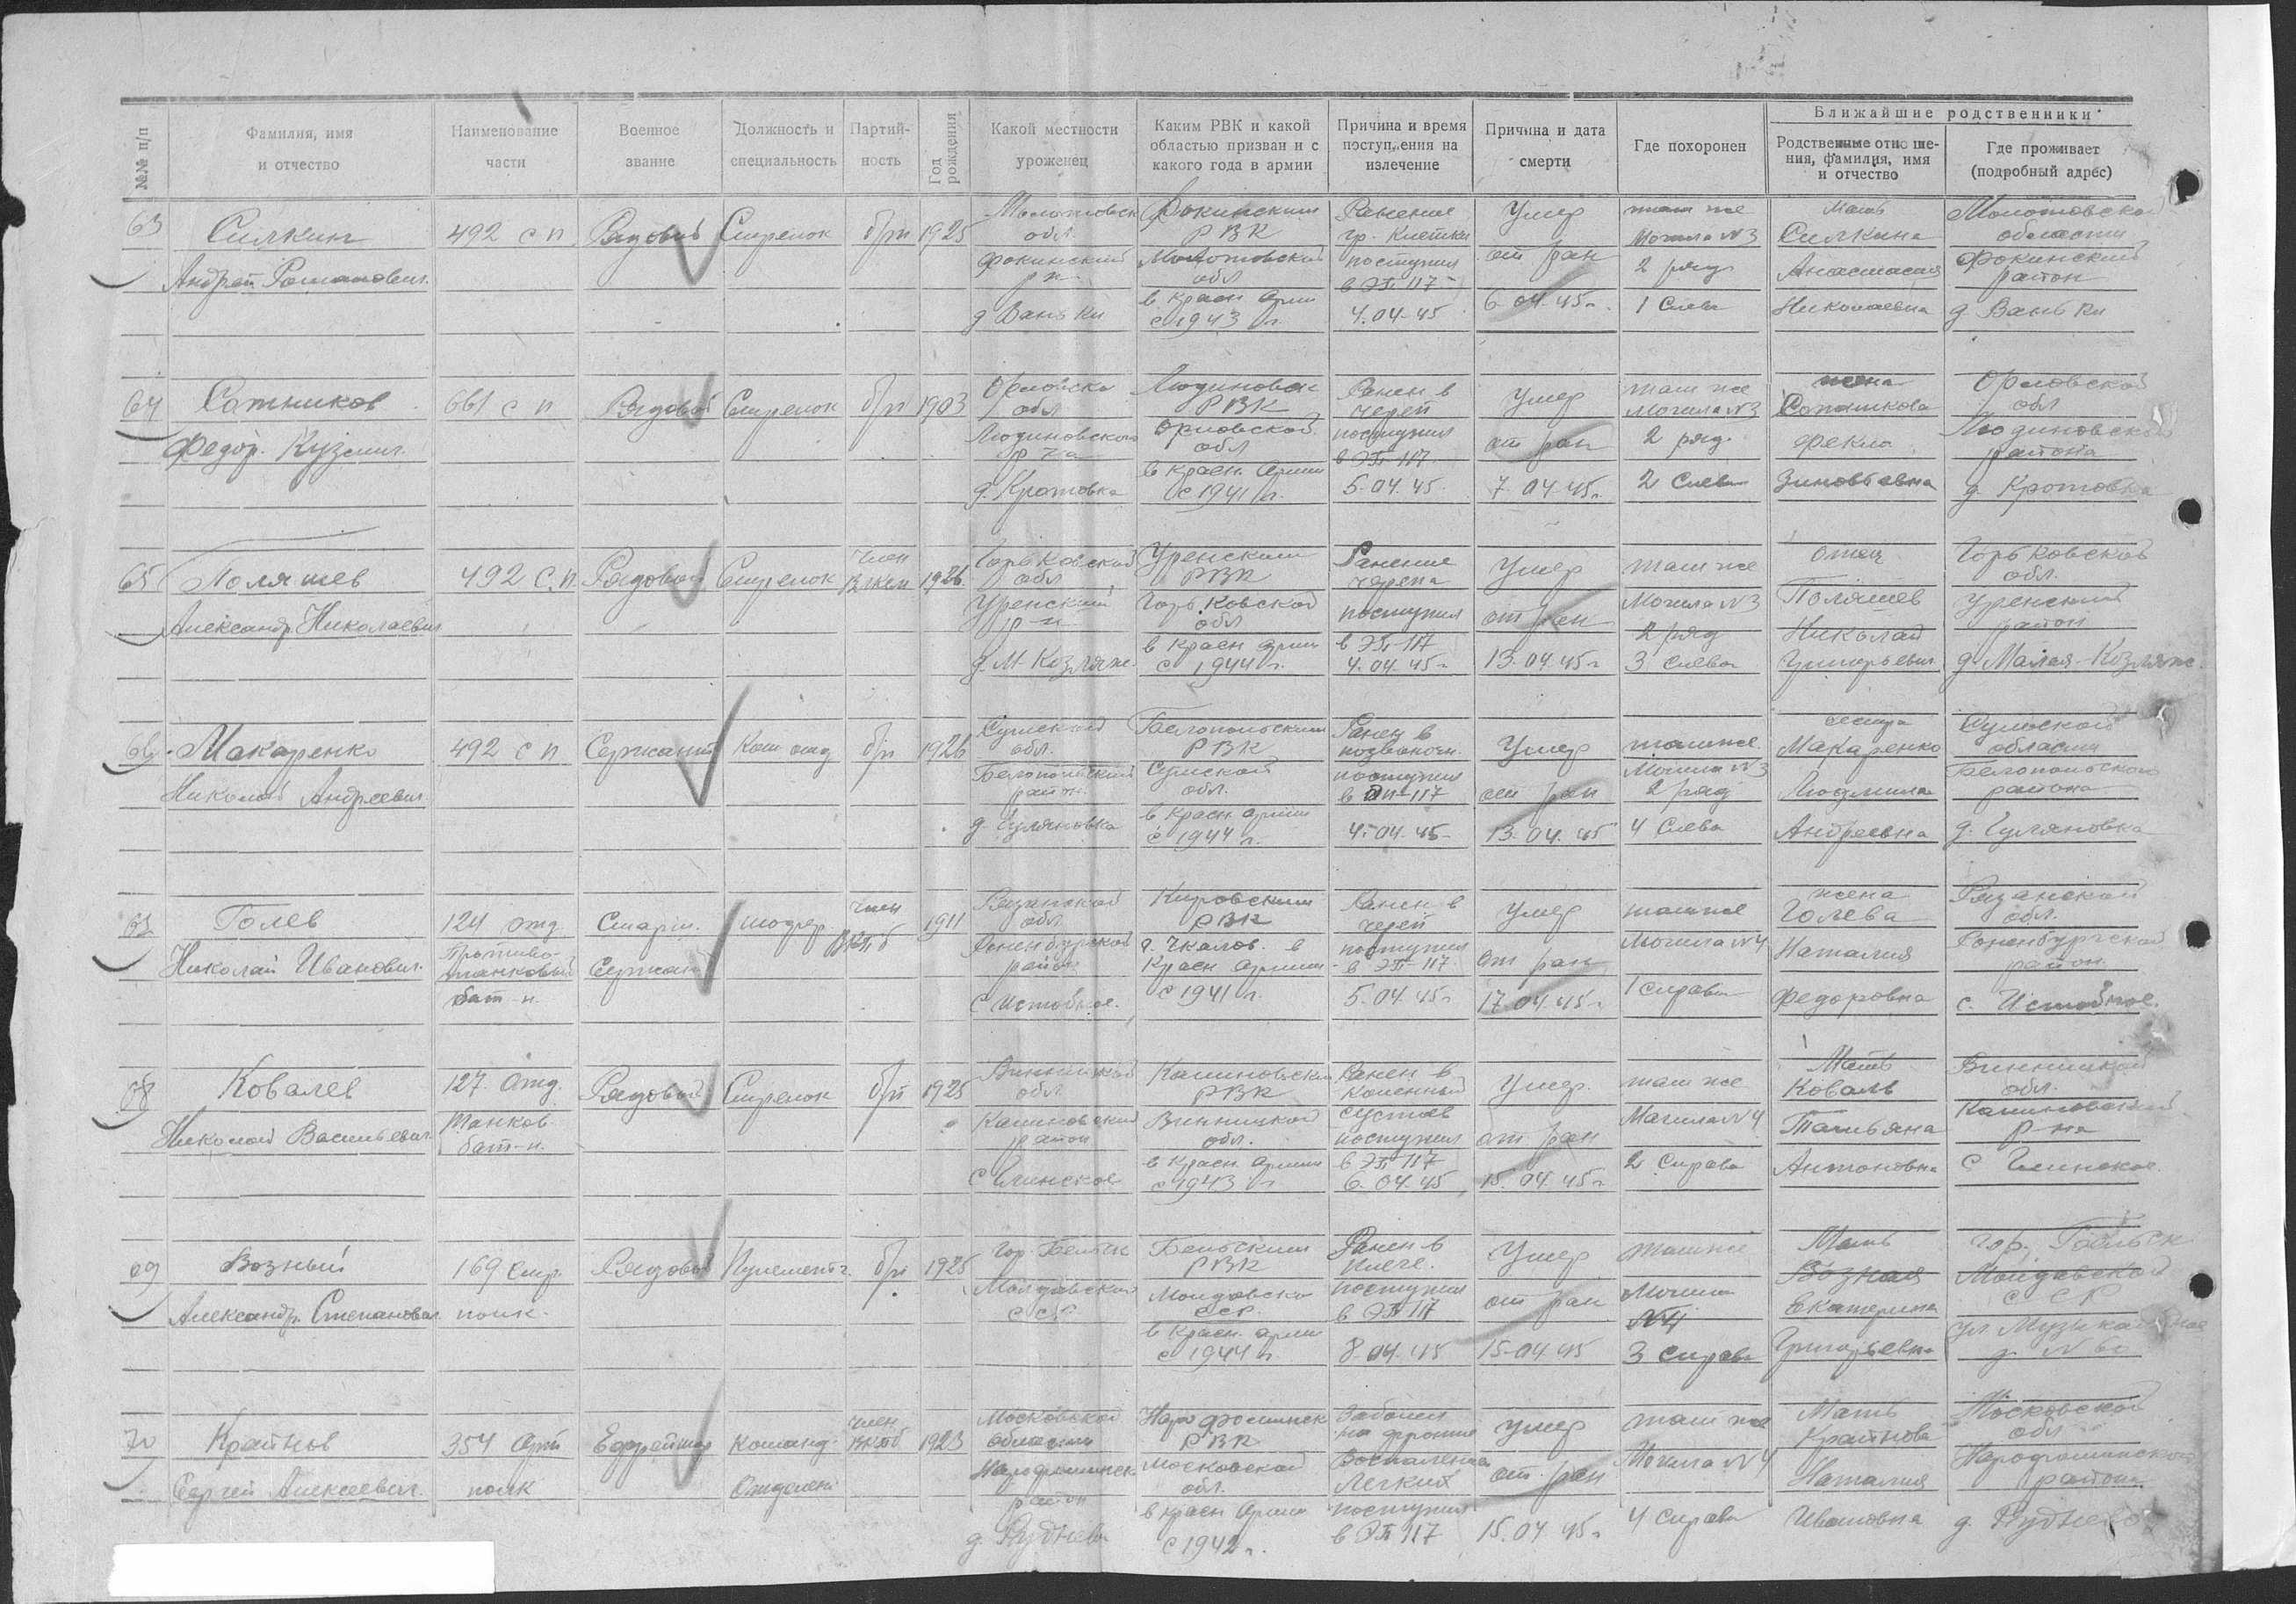 №№ п/п
Фамилия, имя
и отчество
Наименование
части
Военное
звание
Должность и
специальность
Партий-
ность
Год
рождения
Какой местности
уроженец
Каким РВК и какой
областью призван и с
какого года в армии
Причина и время
поступления на
излечение
Причина и дата
смерти
Где похоронен
Ближайшие родственники
Родственные отноше-
ния, фамилия, имя
и отчество
Где проживает
(подробный адрес)
63
Силкин
Андрей Романович
492 с п
Рядовой
Стрелок
б/п
1925
Молотовск
обл.
Фокинский
р н
д Вань Ки
Фокинским
РВК
Молотовской
обл
в Красн Арми
с 1943 г.
Ранение
гр. Клетки
поступил
в ЭП 117
4.04.45
Умер
от ран
6.04.45г.
там же
Могила №3
2 ряд
1 Слева
Мать
Силкина
Анастасия
Николаевна
Молотовской
области
Фокинский
район
д. Вань Ки
64
Сотников
Федор. Кузмич.
661 с п
Рядовой
Стрелок
б/п
1903
Орловско
обл
Людиновского
р на
д. Кротовка
Людиновск
РВК
Орловской
обл
в Красн. Армии
с 1941 г.
Ранен в
череп
поступил
в ЭП-117
5.04.45
Умер
от ран
7.04.45г.
там же
Могила №3
2 ряд.
2 Слева
жена
Сотникова
Фекла
Зиновьевна
Орловской
обл
Людиновской
района
д. Кротовка
65
Поляшев
Александр Николаевич
492 С.П.
Рядовой
Стрелок
Член
ВЛКСМ
1926
Горьковской
обл
Уренский
р-н
д. М-Козляне.
Уренским
РВК
Горьковской
обл
в Красн Арми
с 1944 г.
Ранение
черепа
поступил
в ЭП-117
4.04.45г
Умер
от ран
13.04.45г
там же
Могила №3
2 ряд
3 слева
отец
Поляшев
Николай
Григорьевич
Горьковской
обл.
Уренский
район
д. Малая-Козляне.
66.
Макаренко
Николай Андреевич
492 с п
Сержант
Ком отд
б/п
1926
Сумской
обл.
Белопольский
район.
д. Гуляновка
Белопольским
РВК
Сумской
обл.
в Красн. армии
с 1944 г.
Ранен в
позвоночн.
поступил
в ЭП-117
4.04.45
Умер
от ран
13.04.45
там же.
Могила №3
2 ряд
4 Слева
сестра
Макаренко
Людмила
Андреевна
Сумской
области
Белопольского
района
д. Гуляновка
Голев
Николай Иванович.
124 отд
Противо-
танковый
бат-н.
Старш.
Сержант
шофер
Член
ВКПб
1911
Рязанской
обл.
Раненбургской
район
с Истобное.
Кировским
РВК
г. Чкалов. в
Красн Армии
с 1941 г.
Ранен в
череп
поступил
в ЭП-117
5.04.45г
Умер
от ран
17.04.45г
там же
Могила №4
1 справа
жена
Голева
Наталия
Федоровна
Рязанской
обл.
Раненбургской
район
с. Истобное.
68
Ковалев
Николай Васильевич
127 Отд.
Танков.
бат-н.
Рядовой
Стрелок
б/п
1925
Винницкой
обл
Калиновский
район
с Глинское
Калиновским
РВК
Винницкой
обл.
в Красн. Армии
с 1943 г
Ранен в
коленный
сустав
поступил
в ЭП 117
6.04.45
Умер.
от ран
15.04.45г
там же
Могила №4
2 Справа
Мать
Коваль
Татьяна
Антоновна
Винницкой
обл.
Калиновский
р-на
с Глинское.
69
Возный
Александр. Степанович
169 Стр.
полк.
Рядовой
Пулеметч.
б/п
1925
Гор. Бельск
Молдавской
ССР
Бельским
РВК
Молдавско
ССР.
в Красн. арми
с 1944 г.
Ранен в
плече.
поступил
в ЭП 117
8.04.45
Умер
от ран
15.04.45
там же
Могила
№4
3 справа
Мать
Возная
Екатерина
Григорьевна
Гор. Бельск
Молдавской
ССР
ул Музыкальное
70
Крайнов
Сергей Алексеевич.
354 Арт
полк
Ефрейтор
Команд.
Отделен
Член
ВКПб
1923
Московской
области
Нарофоминск.
район
д. Руднева
Нарофоминск
РВК
Московской
обл.
в Красн Армии
с 1942 г.
Заболел
на фронте
Воспаление
Легких
поступил
в ЭП 117
Умер
от. ран
15.04.45г
там же
Могила №4
4 Справа
Мать
Крайнова
Наталия
Ивановна
Московской
обл
Нарофоминской
района
д. Руднево